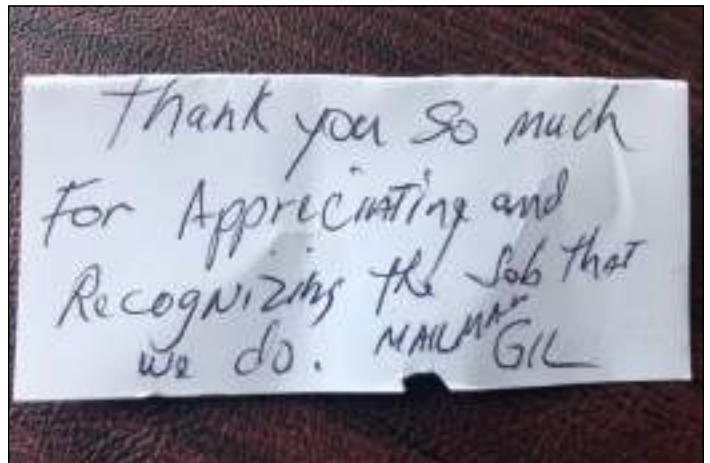 Thank you So much
For Appreciating and
Recognizing the Job that
we do. MAILMAN GIL